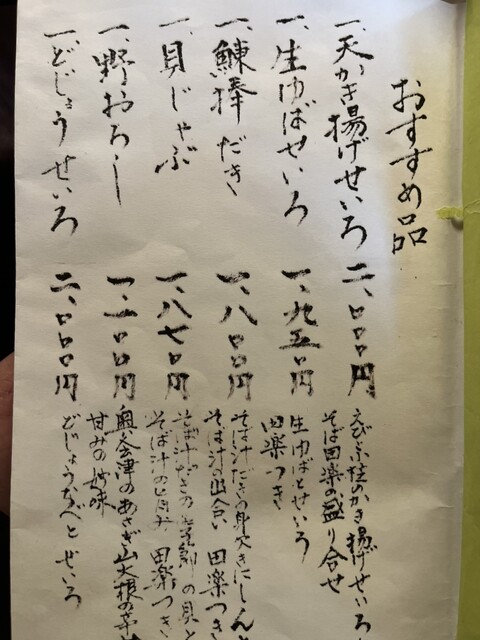 おすすめ品
一、天かき揚げせいろ 二、〇〇〇円
えびと小柱のかき揚げせいろ
そば田楽の盛り合せ
一、生ゆばせいろ 一、九五〇円
生ゆばとせいろ
田楽つき
一、鰊棒だき 一、八〇〇円
そば汁だきの身欠きにしんと
そば汁の出合い 田楽つき
一、貝じゃぶ 一、八七〇円
そば汁だきの 貝と
そば汁の 田楽つき
一、野おろし 一、一〇〇円
奥会津のあさぎ山大根の辛味
甘みの妙味
一、どじょうせいろ 二、〇〇〇円
どじょうなべとせいろ